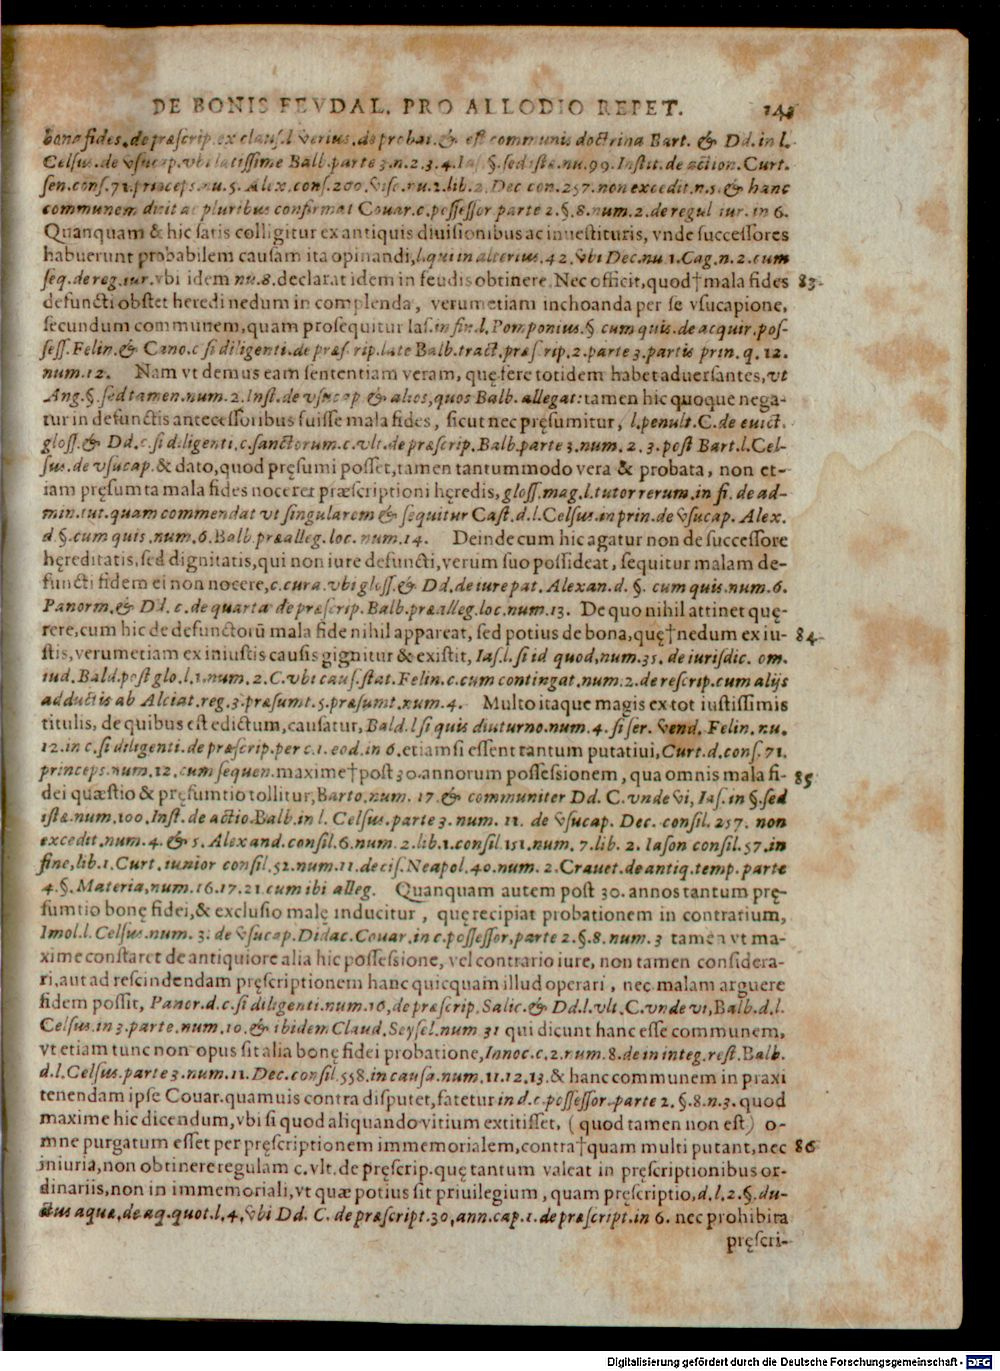 DE BONIS FEVDAL. PRO ALLODIO REPET. 143
bona fides, de præscrip. ex clauſ. l. verius, de probat. & est communis doctrina Bart. & Dd. in l.
Celsus. de vſucap. vbi latissime Balb. parte 3. n. 2. 3. 4. Iaſ. §. sed istæ. nu. 99. Instit. de action. Curt.
sen. conſ. 71. princeps. nu. 5. Alex. conſ. 200. viſo. nu. 1. lib. 2. Dec con. 257. non excedit. n. 5. & hanc
communem dicit ac pluribus confirmat Couar. c. poſſeſſor parte 2. §. 8. num. 2. de regul iur. in 6.
Quanquam & hic ſatis colligitur ex antiquis diuiſionibus ac inueſtituris, vnde ſucceſſores
habuerunt probabilem cauſam ita opinandi, l. qui in alterius. 42. vbi Dec. nu 1. Cag. n. 2. cum
ſeq. de reg. iur. vbi idem nu. 8. declarat idem in feudis obtinere. Nec officit, quod† mala fides 83
defuncti obſtet heredi nedum in complenda, verumetiam inchoanda per ſe vſucapione,
ſecundum communem, quam proſequitur Iaſ. in fin. l. Pomponius. § cum quis. de acquir. poſ-
ſeſſ. Felin. & Cano. c ſi diligenti. de præſcrip. late Balb. tract. præſcrip. 2. parte 3. partis prin. q. 12.
num. 12. Nam vt demus eam ſententiam veram, quę fere totidem habet aduerſantes, vt
Ang. §. ſed tamen. num. 2. Inſt. de vſucap & alios, quos Balb. allegat: tamen hic quoque nega-
tur in defunctis anteceſſoribus fuiſſe mala fides, ſicut nec pręſumitur, l. penult. C. de euict.
gloſſ. & Dd. c. ſi diligenti. c. ſanctorum. c. vlt. de præſcrip. Balb. parte 3. num. 2. 3. poſt Bart. l. Cel-
ſus. de vſucap. & dato, quod pręſumi poſſet, tamen tantummodo vera & probata, non et-
iam pręſumta mala fides noceret præſcriptioni hęredis, gloſſ. mag. l. tutor rerum. in fi. de ad-
min. tut. quam commendat vt ſingularem & ſequitur Caſt. d. l. Celſus. in prin. de vſucap. Alex.
d. §. cum quis. num. 6. Balb. præalleg. loc. num. 14. Deinde cum hic agatur non de ſucceſſore
hęreditatis, ſed dignitatis, qui non iure defuncti, verum ſuo poſſideat, ſequitur malam de-
functi fidem ei non nocere, c. cura. vbi gloſſ. & Dd. de iure pat. Alexan. d. §. cum quis. num. 6.
Panorm. & Dd. c. de quarta de præſcrip. Balb. præalleg. loc. num. 13. De quo nihil attinet quę-
rere, cum hic de defunctorū mala fide nihil appareat, ſed potius de bona, quę† nedum ex iu- 84
ſtis, verumetiam ex iniuſtis cauſis gignitur & exiſtit, Iaſ. l. ſi id quod, num. 35. de iurisdic. om.
iud. Bald. poſt glo. l. 1. num. 2. C. vbi cauſ. ſtat. Felin. c. cum contingat, num. 2. de reſcrip. cum alijs
adductis ab Alciat. reg. 3. præſumt. 5. præſumt. num. 4. Multo itaque magis ex tot iuſtiſſimis
titulis, de quibus eſt edictum, cauſatur, Bald. l ſi quis diuturno. num. 4. ſi ſer. vend. Felin. nu.
12. in c. ſi diligenti. de præſcrip. per c. 1. eod. in 6. etiamſi eſſent tantum putatiui, Curt. d. conſ. 71.
princeps. num. 12. cum ſequen. maxime† poſt 30. annorum poſſeſſionem, qua omnis mala fi- 85
dei quæſtio & pręſumtio tollitur, Barto. num. 17. & communiter Dd. C. vnde vi, Iaſ. in §. ſed
iſtæ. num. 100. Inſt. de actio. Balb. in l. Celſus. parte 3. num. 11. de vſucap. Dec. conſil. 257. non
excedit. num. 4. & 5. Alexand. conſil. 6. num. 2. lib. 1. conſil. 151. num. 7. lib. 2. Iaſon conſil. 57. in
fine, lib. 1. Curt. iunior conſil. 52. num. 11. deciſ. Neapol. 40. num. 2. Crauet. de antiq. temp. parte
4. §. Materia, num. 16. 17. 21. cum ibi alleg. Quanquam autem poſt 30. annos tantum pre-
ſumtio bonę fidei, & excluſio malę inducitur, quę recipiat probationem in contrarium,
Imol. l. Celſus. num. 3. de vſucap. Didac. Couar. in c. poſſeſſor, parte 2. §. 8. num. 3 tamen vt ma-
xime conſtaret de antiquiore alia hic poſſeſſione, vel contrario iure, non tamen conſidera-
ri, aut ad reſcindendam pręſcriptionem hanc quicquam illud operari, nec malam arguere
fidem poſſit, Panor. d. c. ſi diligenti. num. 16, de præſcrip. Salic. & Dd. l. vlt. C. vnde vi, Balb. d. l.
Celſus. in 3. parte. num. 10. & ibidem Claud. Seyſel. num 31 qui dicunt hanc eſſe communem,
vt etiam tunc non opus ſit alia bonę fidei probatione, Innoc. c. 2. num. 8. de in integ. reſt. Balb.
d. l. Celſus. parte 3. num. 11. Dec. conſil. 558. in cauſa. num. 11. 12. 13. & hanc communem in praxi
tenendam ipſe Couar. quamuis contra diſputet, fatetur in d. c. poſſeſſor. parte 2. §. 8. n. 3. quod
maxime hic dicendum, vbi ſi quod aliquando vitium extitiſſet, (quod tamen non eſt) o-
mne purgatum eſſet per pręſcriptionem immemorialem, contra† quam multi putant, nec 86
iniuria, non obtinere regulam c. vlt. de pręſcrip. quę tantum valeat in pręſcriptionibus or-
dinariis, non in immemoriali, vt quæ potius ſit priuilegium, quam pręſcriptio, d. l. 2. §. du-
ctus aquæ, de aq. quot. l. 4. vbi Dd. C. de præſcript. 30. ann. cap. 1. de præſcript. in 6. nec prohibita
pręſcri-
Digitalisierung gefördert durch die Deutsche Forschungsgemeinschaft - DFG